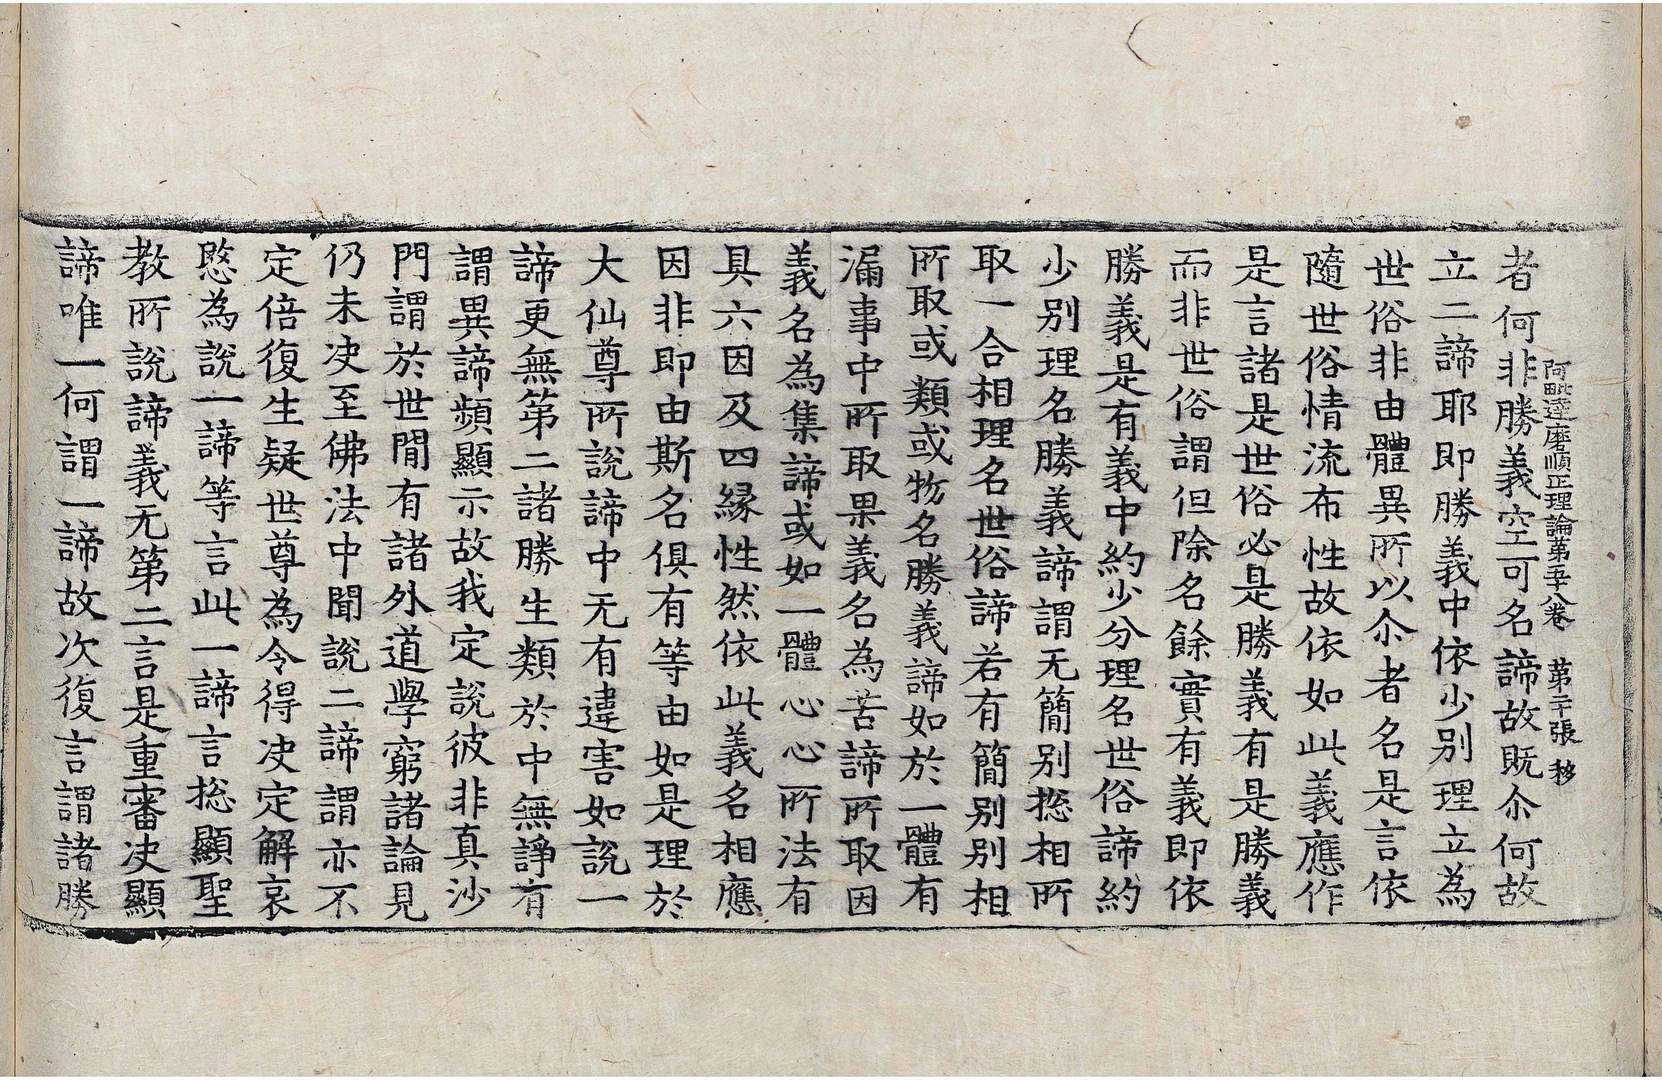 阿毗達磨順正理論第五十八卷　第二十張　移
者何非勝義空可名諦故既尒何故
立二諦耶即勝義中依少別理立為
世俗非由體異所以尒者名是言依
隨世俗情流布性故依如此義應作
是言諸是世俗必是勝義有是勝義
而非世俗謂但除名餘實有義即依
勝義是有義中約少分理名世俗諦約
少別理名勝義諦謂无簡別捴相所
取一合相理名世俗諦若有簡別別相
所取或類或物名勝義諦如於一體有
漏事中所取果義名為苦諦所取因
義名為集諦或如一體心心所法有
具六因及四緣性然依此義名相應
因非即由斯名俱有等由如是理於
大仙尊所說諦中无有違害如說一
諦更無第二諸勝生類於中無諍有
謂異諦頻顯示故我定說彼非真沙
門謂於世間有諸外道學窮諸論見
仍未決至佛法中聞說二諦謂亦不
定倍復生疑世尊為令得決定解哀
愍為說一諦等言此一諦言捴顯聖
教所說諦義无第二言是重審決顯
諦唯一何謂一諦故次復言謂諸勝